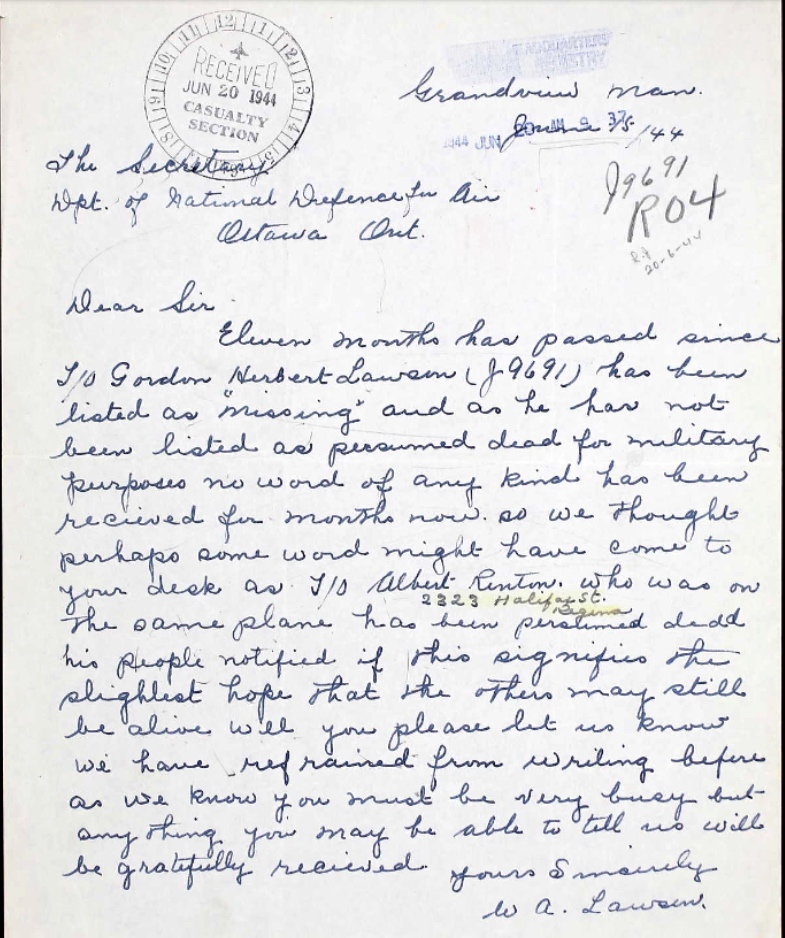 12 11 10 9 8
RECEIVED
JUN 20 1944
CASUALTY
SECTION
HEADQUARTERS
REGISTRY
Grandview Man.
June 15/44
1944 JUN 20 9 37
The Secretary
Dpt. of National Defence for Air
Ottawa Ont.
J9691
R04
20-6-44
Dear Sir
Eleven months has passed since
F/O Gordon Herbert Lawson (J9691) has been
listed as "missing" and as he has not
been listed as persumed dead for military
purposes no word of any kind has been
recieved for months now. so we thought
perhaps some word might have come to
your desk as F/O Albert Renton. who was on
2323 Halifax St.
Regina
the same plane has been persumed dead
his people notified if this signifies the
slightest hope that the others may still
be alive will you please let us know
we have refrained from writing before
as we know you must be very busy but
any thing you may be able to tell us will
be gratefully recieved
yours Sincirely
W A. Lawson.